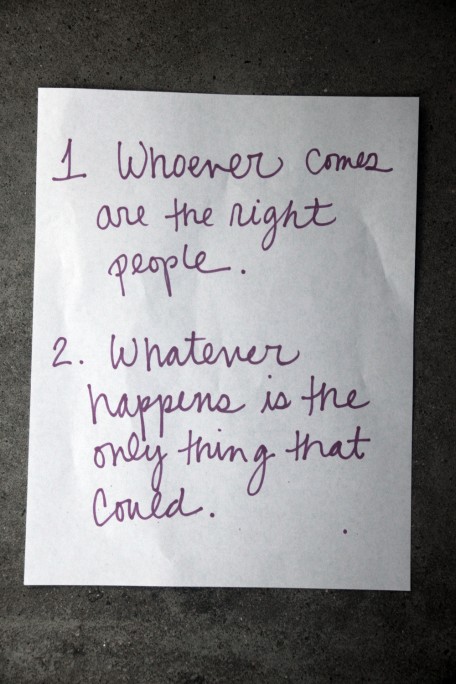 1. Whoever comes
are the right
people.
2. Whatever
happens is the
only thing that
could.